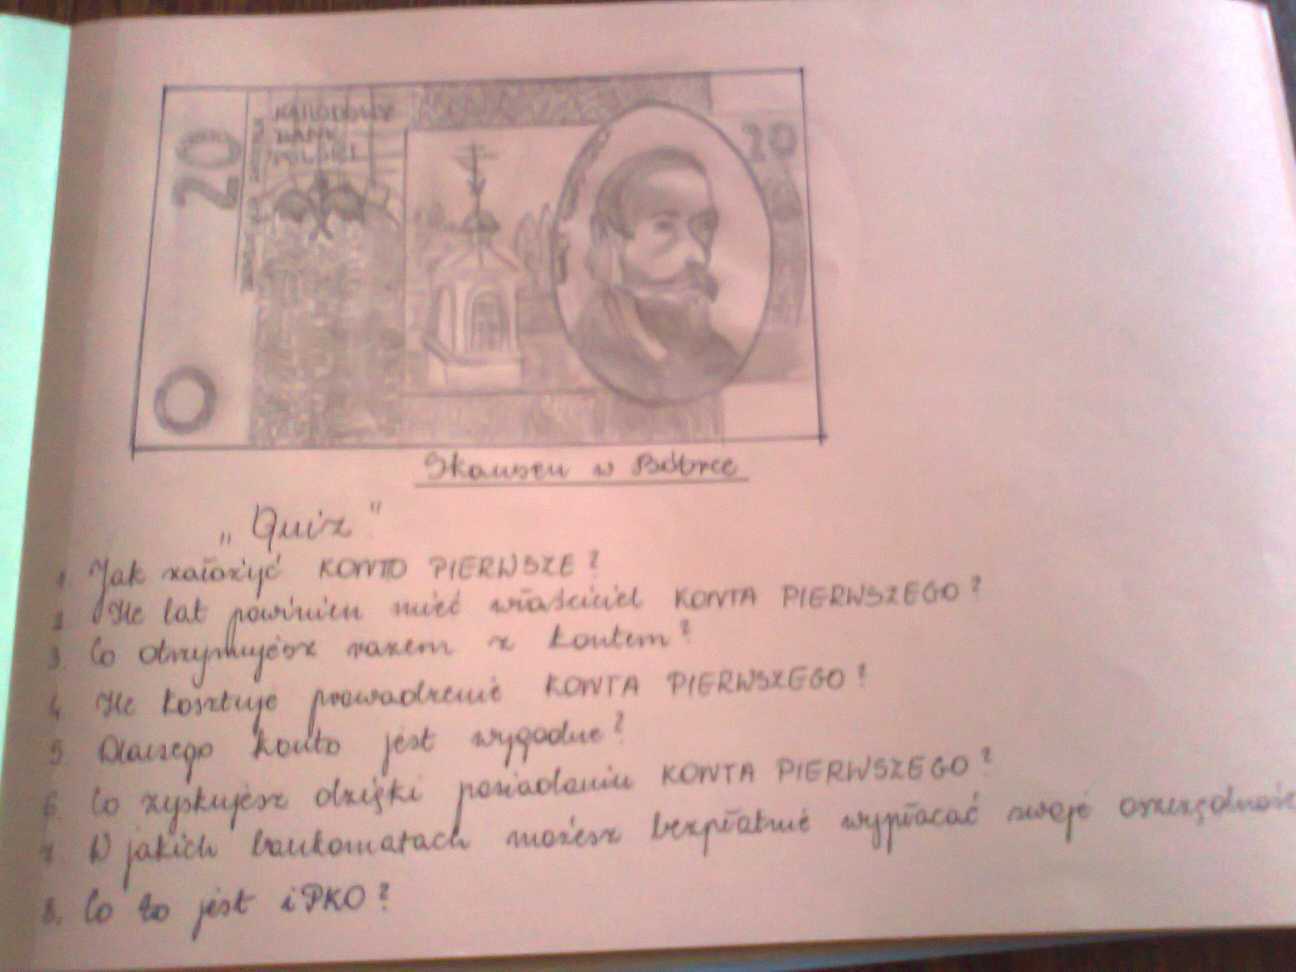 20
NARODOWY
BANK
POLSKI
20
Skansen w Bóbrce
„Quiz"
1. Jak założyć KONTO PIERWSZE?
2. Ile lat powinien mieć właściciel KONTA PIERWSZEGO?
3. Co otrzymujesz razem z kontem?
4. Ile kosztuje prowadzenie KONTA PIERWSZEGO?
5. Dlaczego konto jest wygodne?
6. Co zyskujesz dzięki posiadaniu KONTA PIERWSZEGO?
7. W jakich bankomatach możesz bezpłatnie wypłacać swoje
8. Co to jest iPKO?